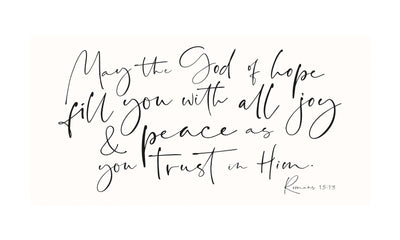 May the God of hope
fill you with all joy
& peace as
you trust in Him.
Romans 15:13